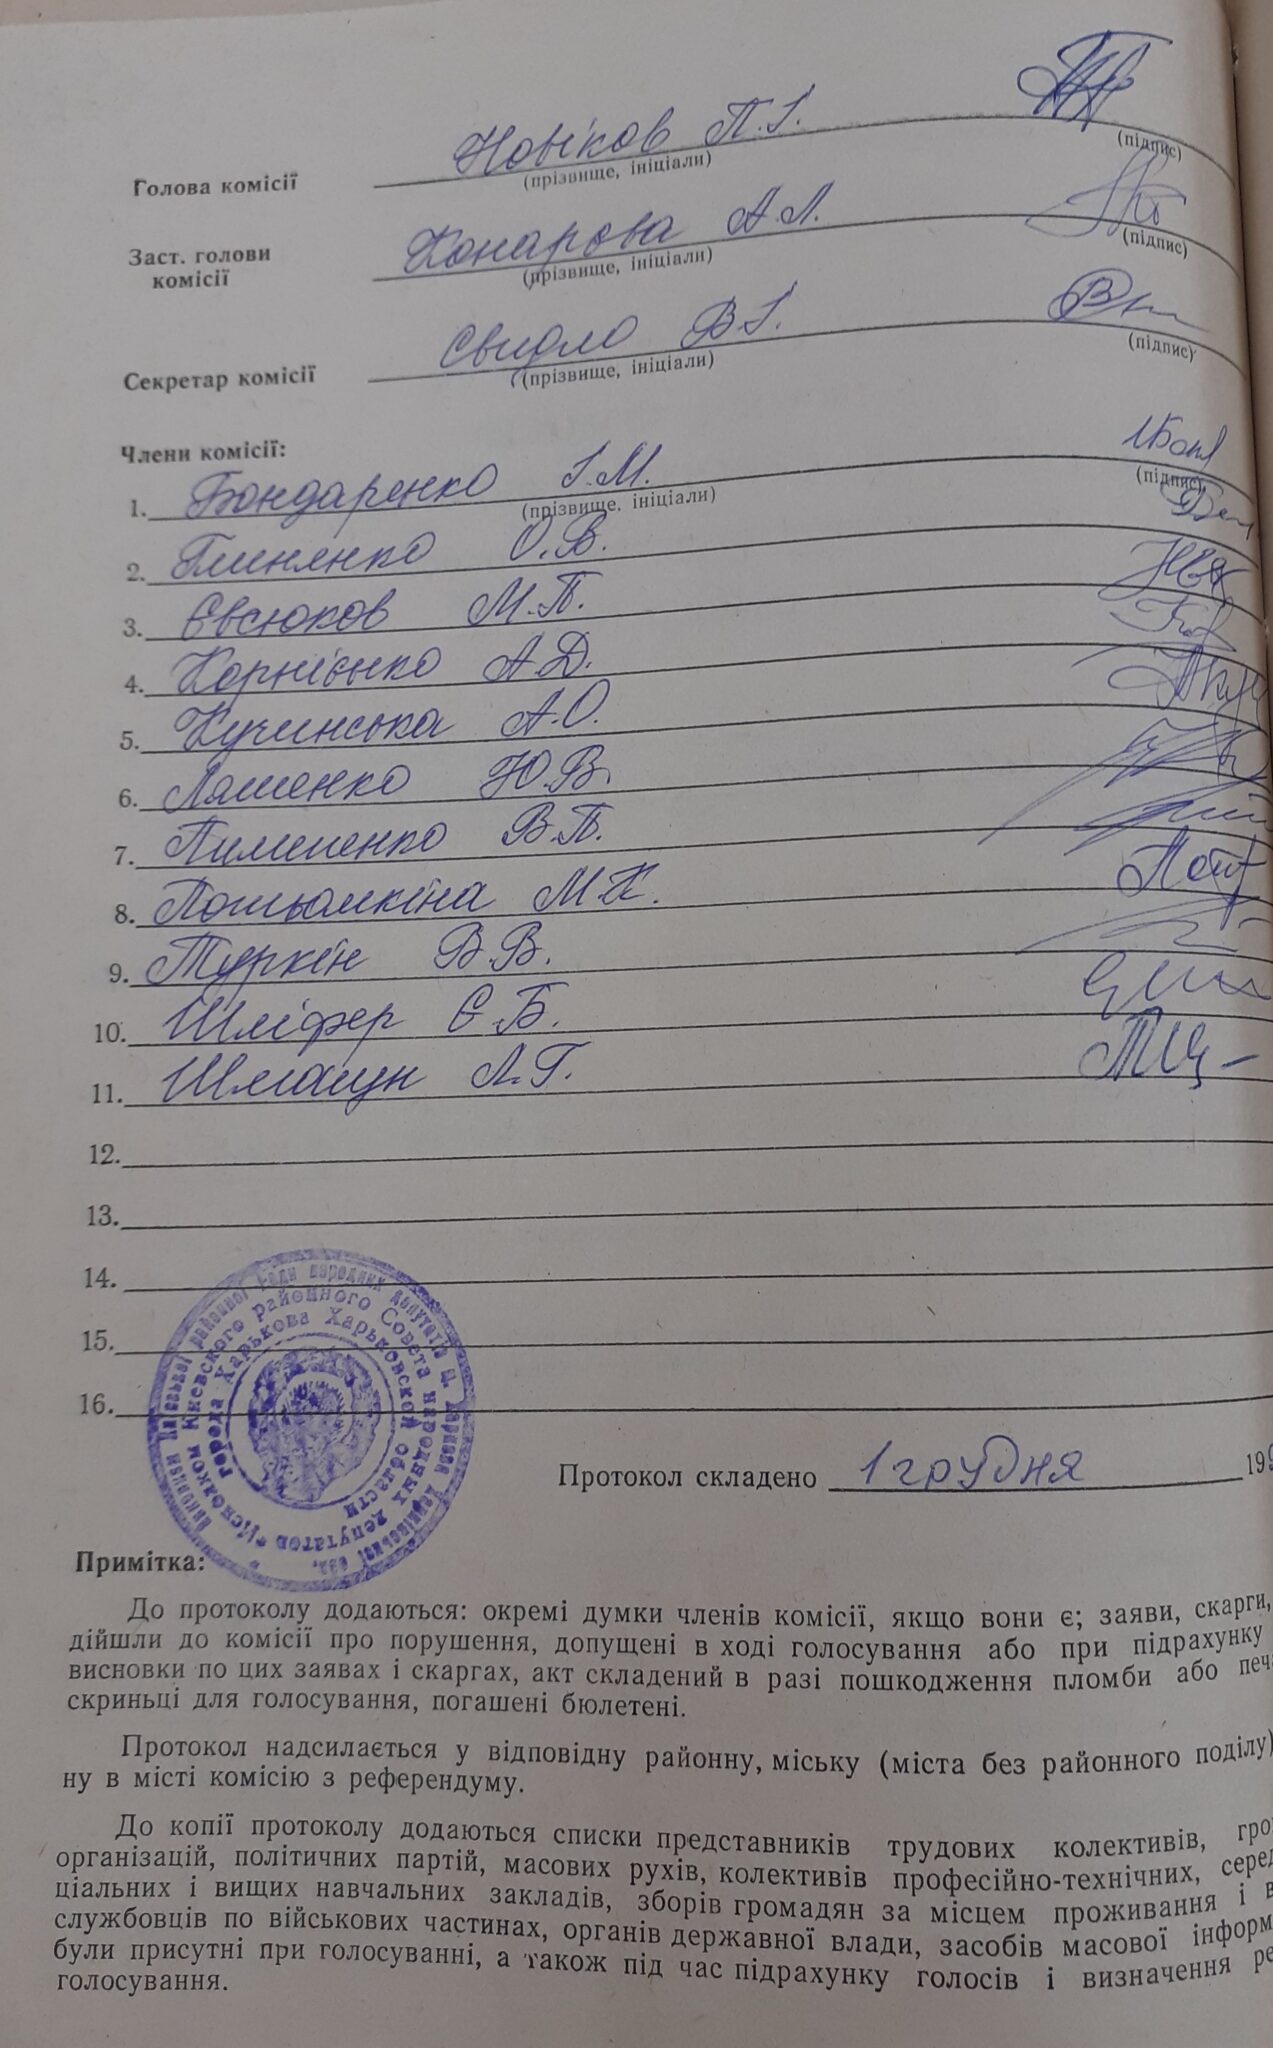 Новіков П.І.
Голова комісії
(прізвище, ініціали)
(підпис)
Заст. голови
комісії
Конарєва А.Л.
(прізвище, ініціали)
(підпис)
Свидло В.І.
Секретар комісії
(прізвище, ініціали)
(підпис)
Члени комісії:
1. Бондаренко І.М.
(прізвище, ініціали)
(підпис)
2. О.В.
3. Євсюков М.П.
4. Корнієнко А.Д.
5. Кучинська А.О.
6. Ляшенко Ю.В.
7. Пимененко В.П.
8. Потьомкіна М.К.
9. Туркін В.В.
10. Шліфер Є.Б.
11. Л.Г.
12.
13.
14.
15.
16.
Виконком Київської районної Ради народних депутатів м. Харкова Харківської обл.
Исполком Киевского районного Совета народных депутатов
города Харькова Харьковской области
Протокол складено 1 грудня 199
Примітка:
До протоколу додаються: окремі думки членів комісії, якщо вони є; заяви, скарги,
дійшли до комісії про порушення, допущені в ході голосування або при підрахунку
висновки по цих заявах і скаргах, акт складений в разі пошкодження пломби або печа
скриньці для голосування, погашені бюлетені.
Протокол надсилається у відповідну районну, міську (міста без районного поділу)
ну в місті комісію з референдуму.
До копії протоколу додаються списки представників трудових колективів, гро
організацій, політичних партій, масових рухів, колективів професійно-технічних, серед
ціальних і вищих навчальних закладів, зборів громадян за місцем проживання і в
службовців по військових частинах, органів державної влади, засобів масової інформ
були присутні при голосуванні, а також під час підрахунку голосів і визначення ре
голосування.